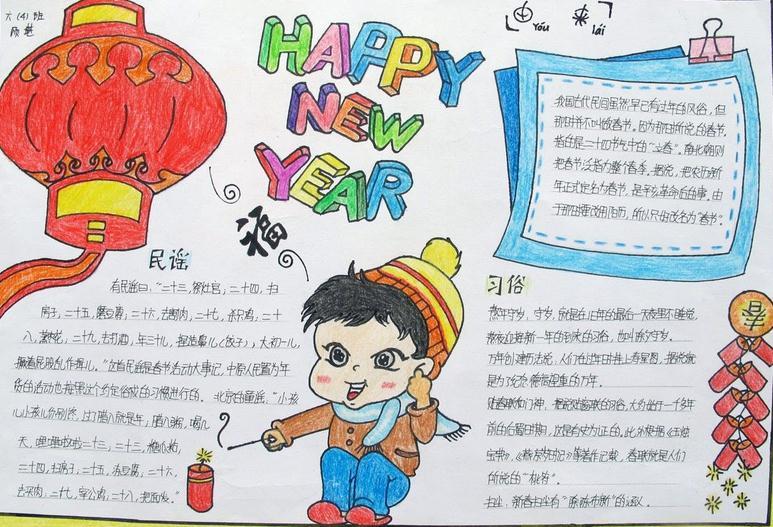 六(4)班
HAPPY
NEW
YEAR
由 yóu 来 lái
我国古代民间虽然早已有过年的风俗，但
那时并不叫做春节。因为那时所说的春节，
指的是二十四节气中的"立春"。南北朝则
把春节泛指为整个春季。据说，把农历新
年正式定名为春节，是辛亥革命后的事。由
于那时要改用阳历，所以只好改名为"春节"。
福
民谣
有民谣曰："二十三，祭灶官；二十四，扫
房子，二十五，磨豆腐；二十六，去割肉，二七，杀只鸡，二十
八，蒸枣花，二十九，去打酒，年三十儿，捏造鼻儿(饺子)，大初一儿，
撅着屁股乱作揖儿。"这首民谣是春节活动大事记，中原人民置为年
货的活动也按照这个约定俗成的习惯进行的。北京的童谣，"小孩
儿小孩儿你别馋，过了腊八就是年，腊八粥，喝几
天，哩哩啦啦二十三，二十三，糖瓜粘，
二十四，扫房子，二十五，冻豆腐，二十六，
去买肉，二十七，宰公鸡，二十八，把面发。"
习俗
熬年守岁，守岁，就是在旧年的最后一天夜里不睡觉，
熬夜迎接新一年的到来的习俗，也叫除夕守岁。
万年创建历法说，人们在过年时挂上寿星图，据说就
是为了纪念德高望重的万年。
贴春联和门神，据说贴春联的习俗，大约始于一千多年
前的后蜀时期，这是有史为证的。此外根据《玉烛
宝典》，《燕京岁时记》等著作记载，春联就是人们
所说的"桃符"。
扫尘，新春扫尘有"除陈布新"的涵义。